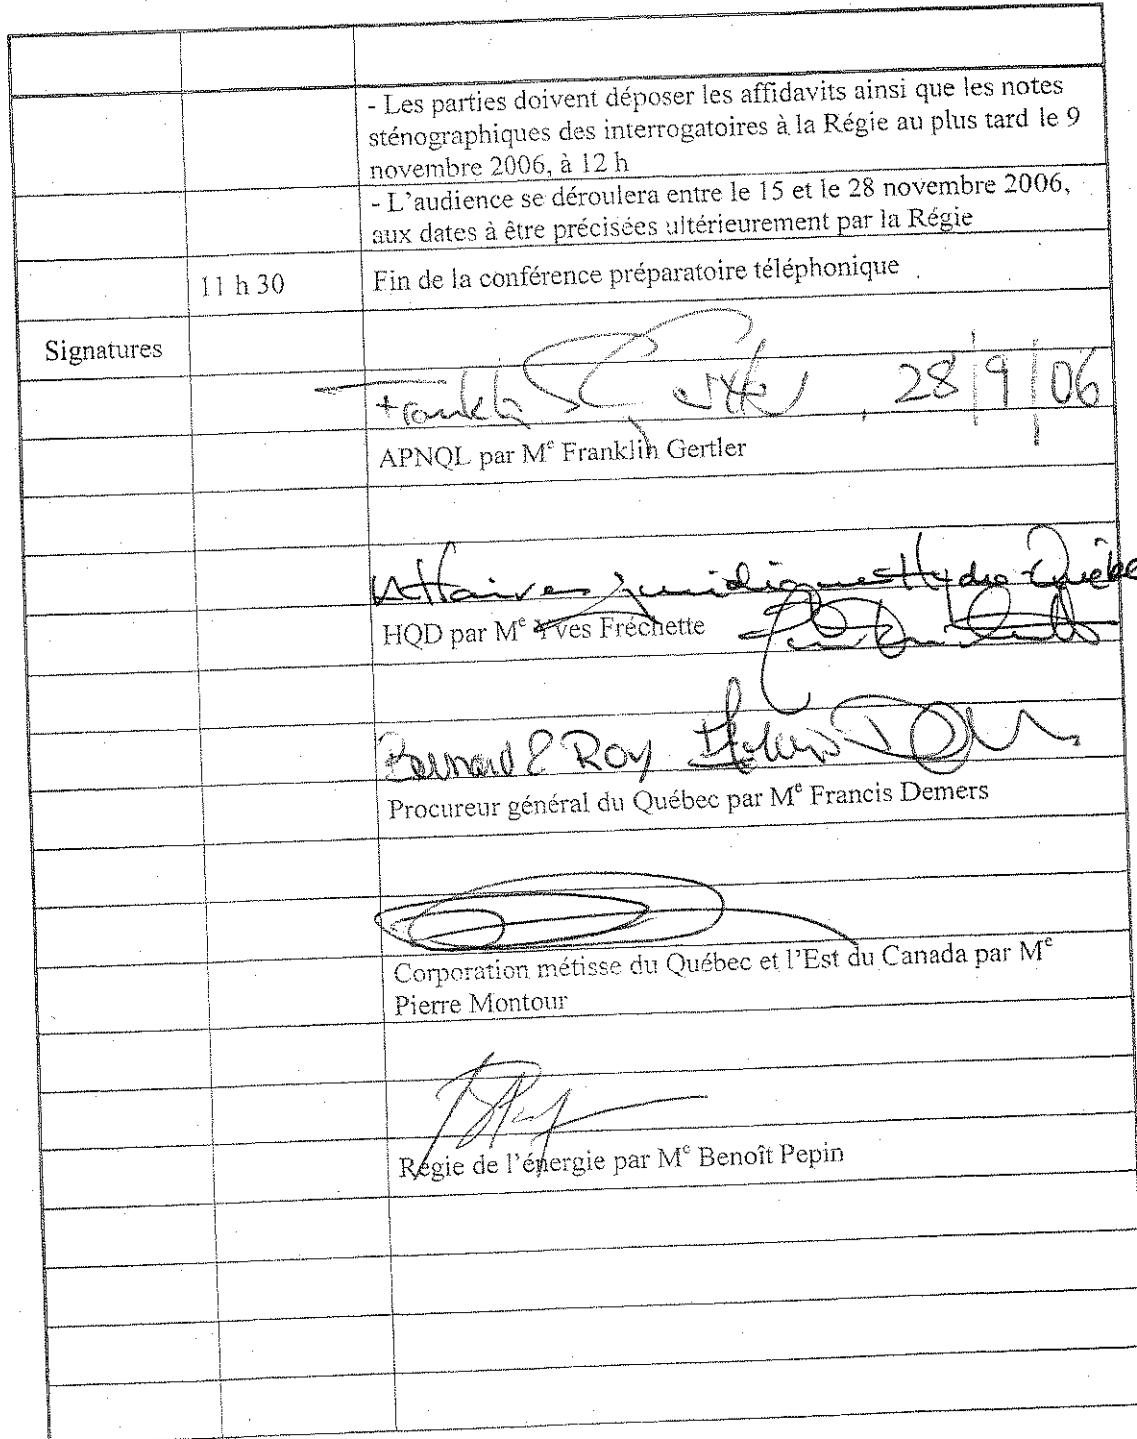 - Les parties doivent déposer les affidavits ainsi que les notes
sténographiques des interrogatoires à la Régie au plus tard le 9
novembre 2006, à 12 h
- L'audience se déroulera entre le 15 et le 28 novembre 2006,
aux dates à être précisées ultérieurement par la Régie
11 h 30 Fin de la conférence préparatoire téléphonique
Signatures
Franklin S. Gertler, 28/9/06
APNQL par Me Franklin Gertler
Affaires juridiques Hydro-Québec
HQD par Me Yves Fréchette
Bernard & Roy
Procureur général du Québec par Me Francis Demers
Corporation métisse du Québec et l'Est du Canada par Me
Pierre Montour
Régie de l'énergie par Me Benoît Pepin